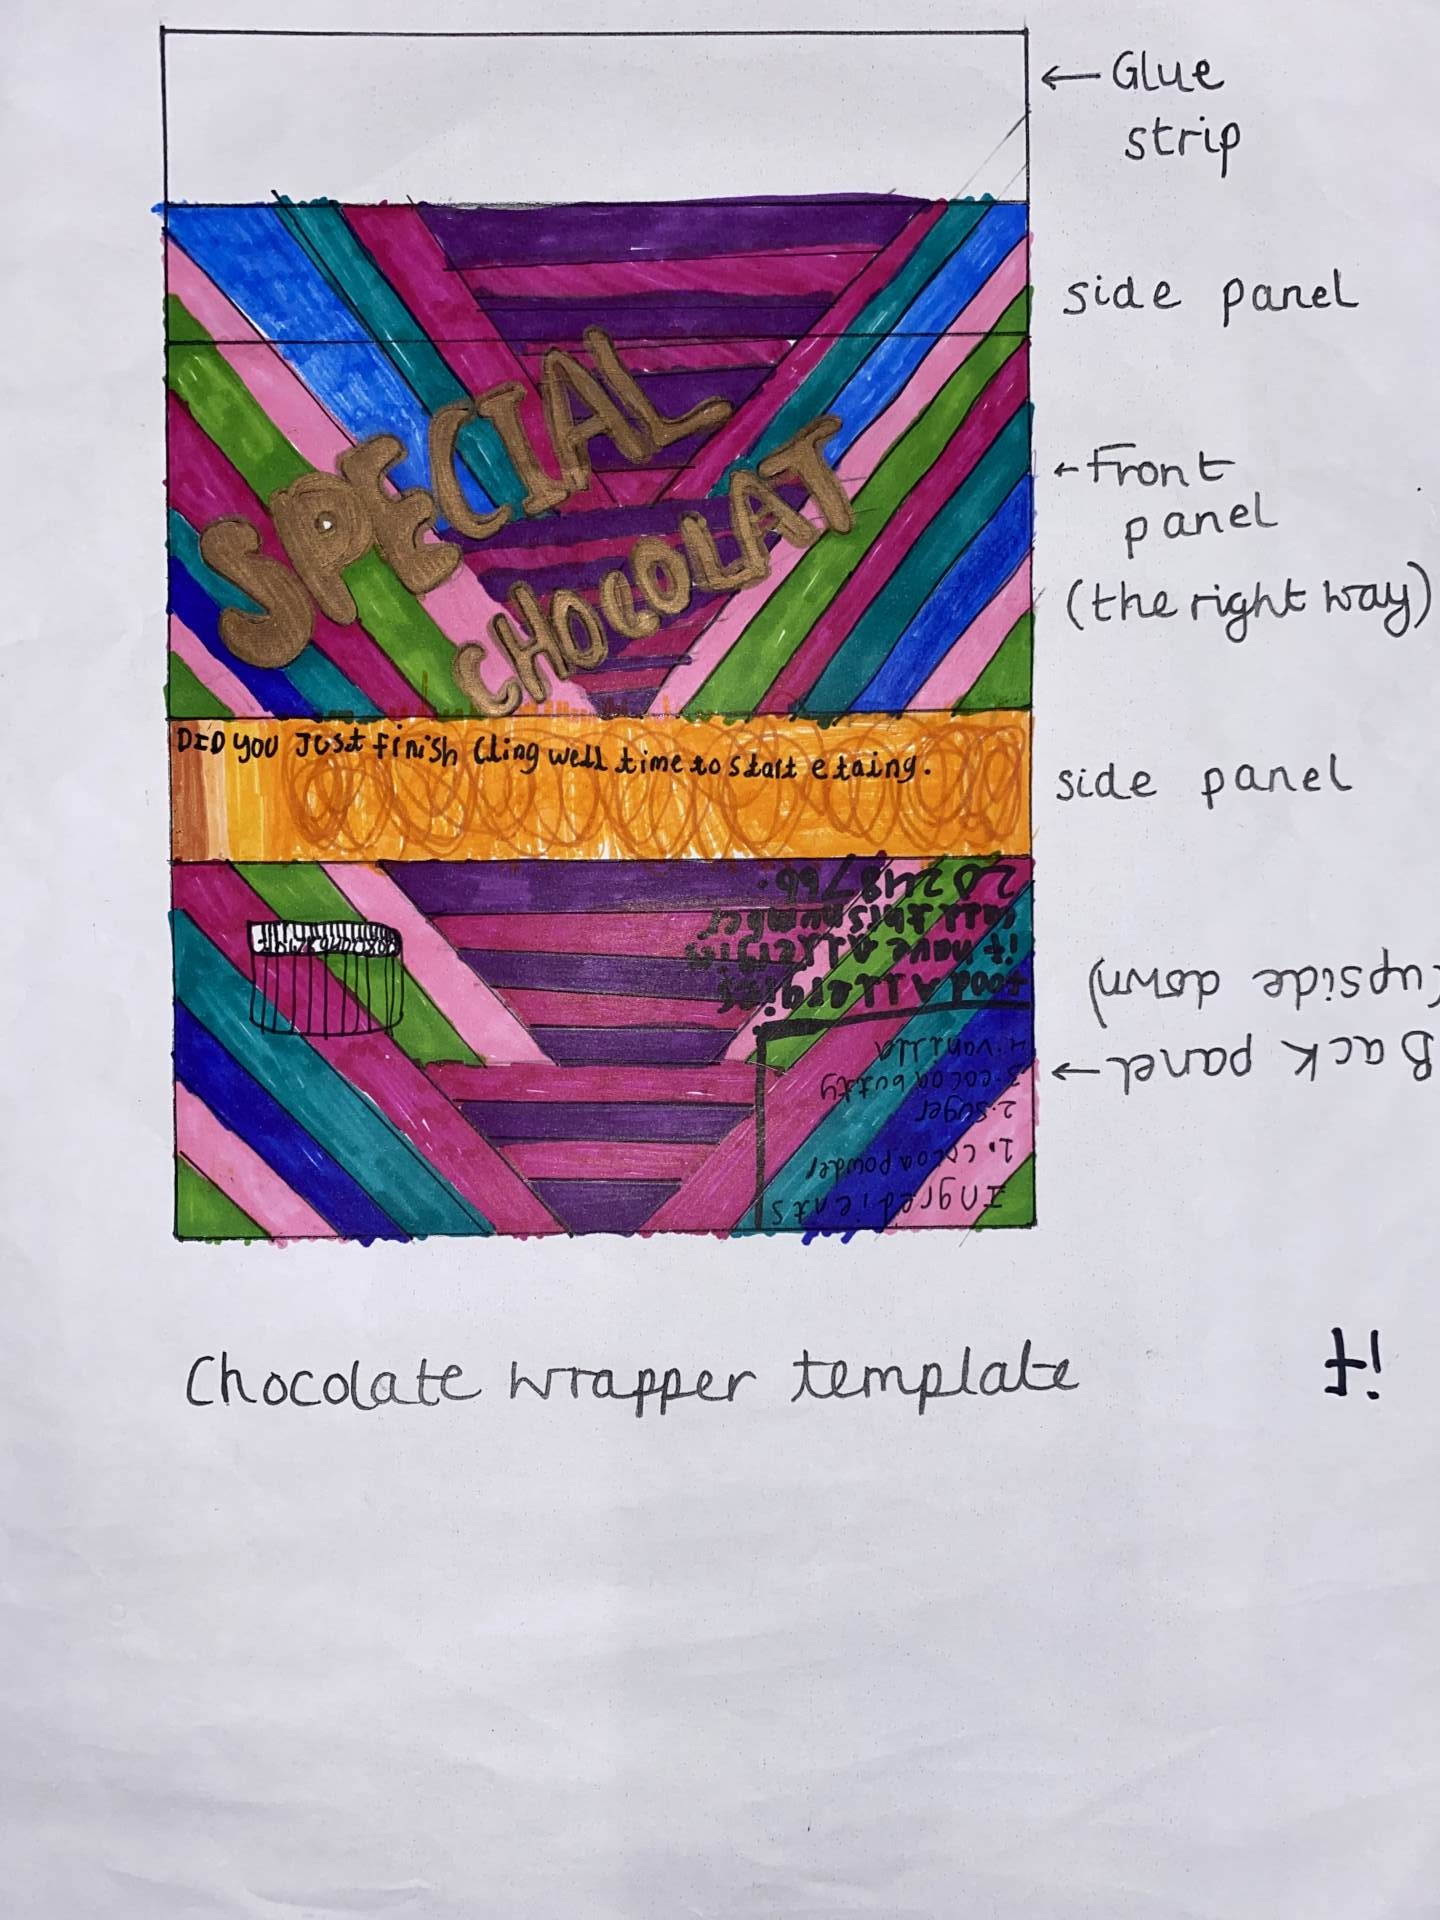 ← Glue
strip
side panel
SPECIAL
CHOCOLAT
← Front
panel
(the right way)
DID you Just finish Cling well time to start etaing.
side panel
Ingredients
1. cocoa powder
2. suger
3. cocoa butty
4. vanilla
food Allergies
if have Allergis
call this number
20248766.
Back panel →
(upside down)
Chocolate wrapper template
it